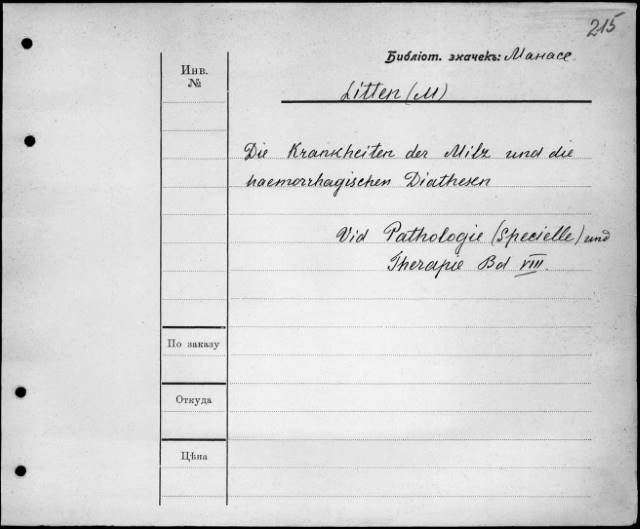 215
Библіот. значекъ: Манасе.
Инв.
№
Litten (M)
Die Krankheiten der Milz und die
haemorrhagischen Diathesen
Vid Pathologie (Specielle) und
Therapie Bd VIII.
По заказу
Откуда
Цѣна